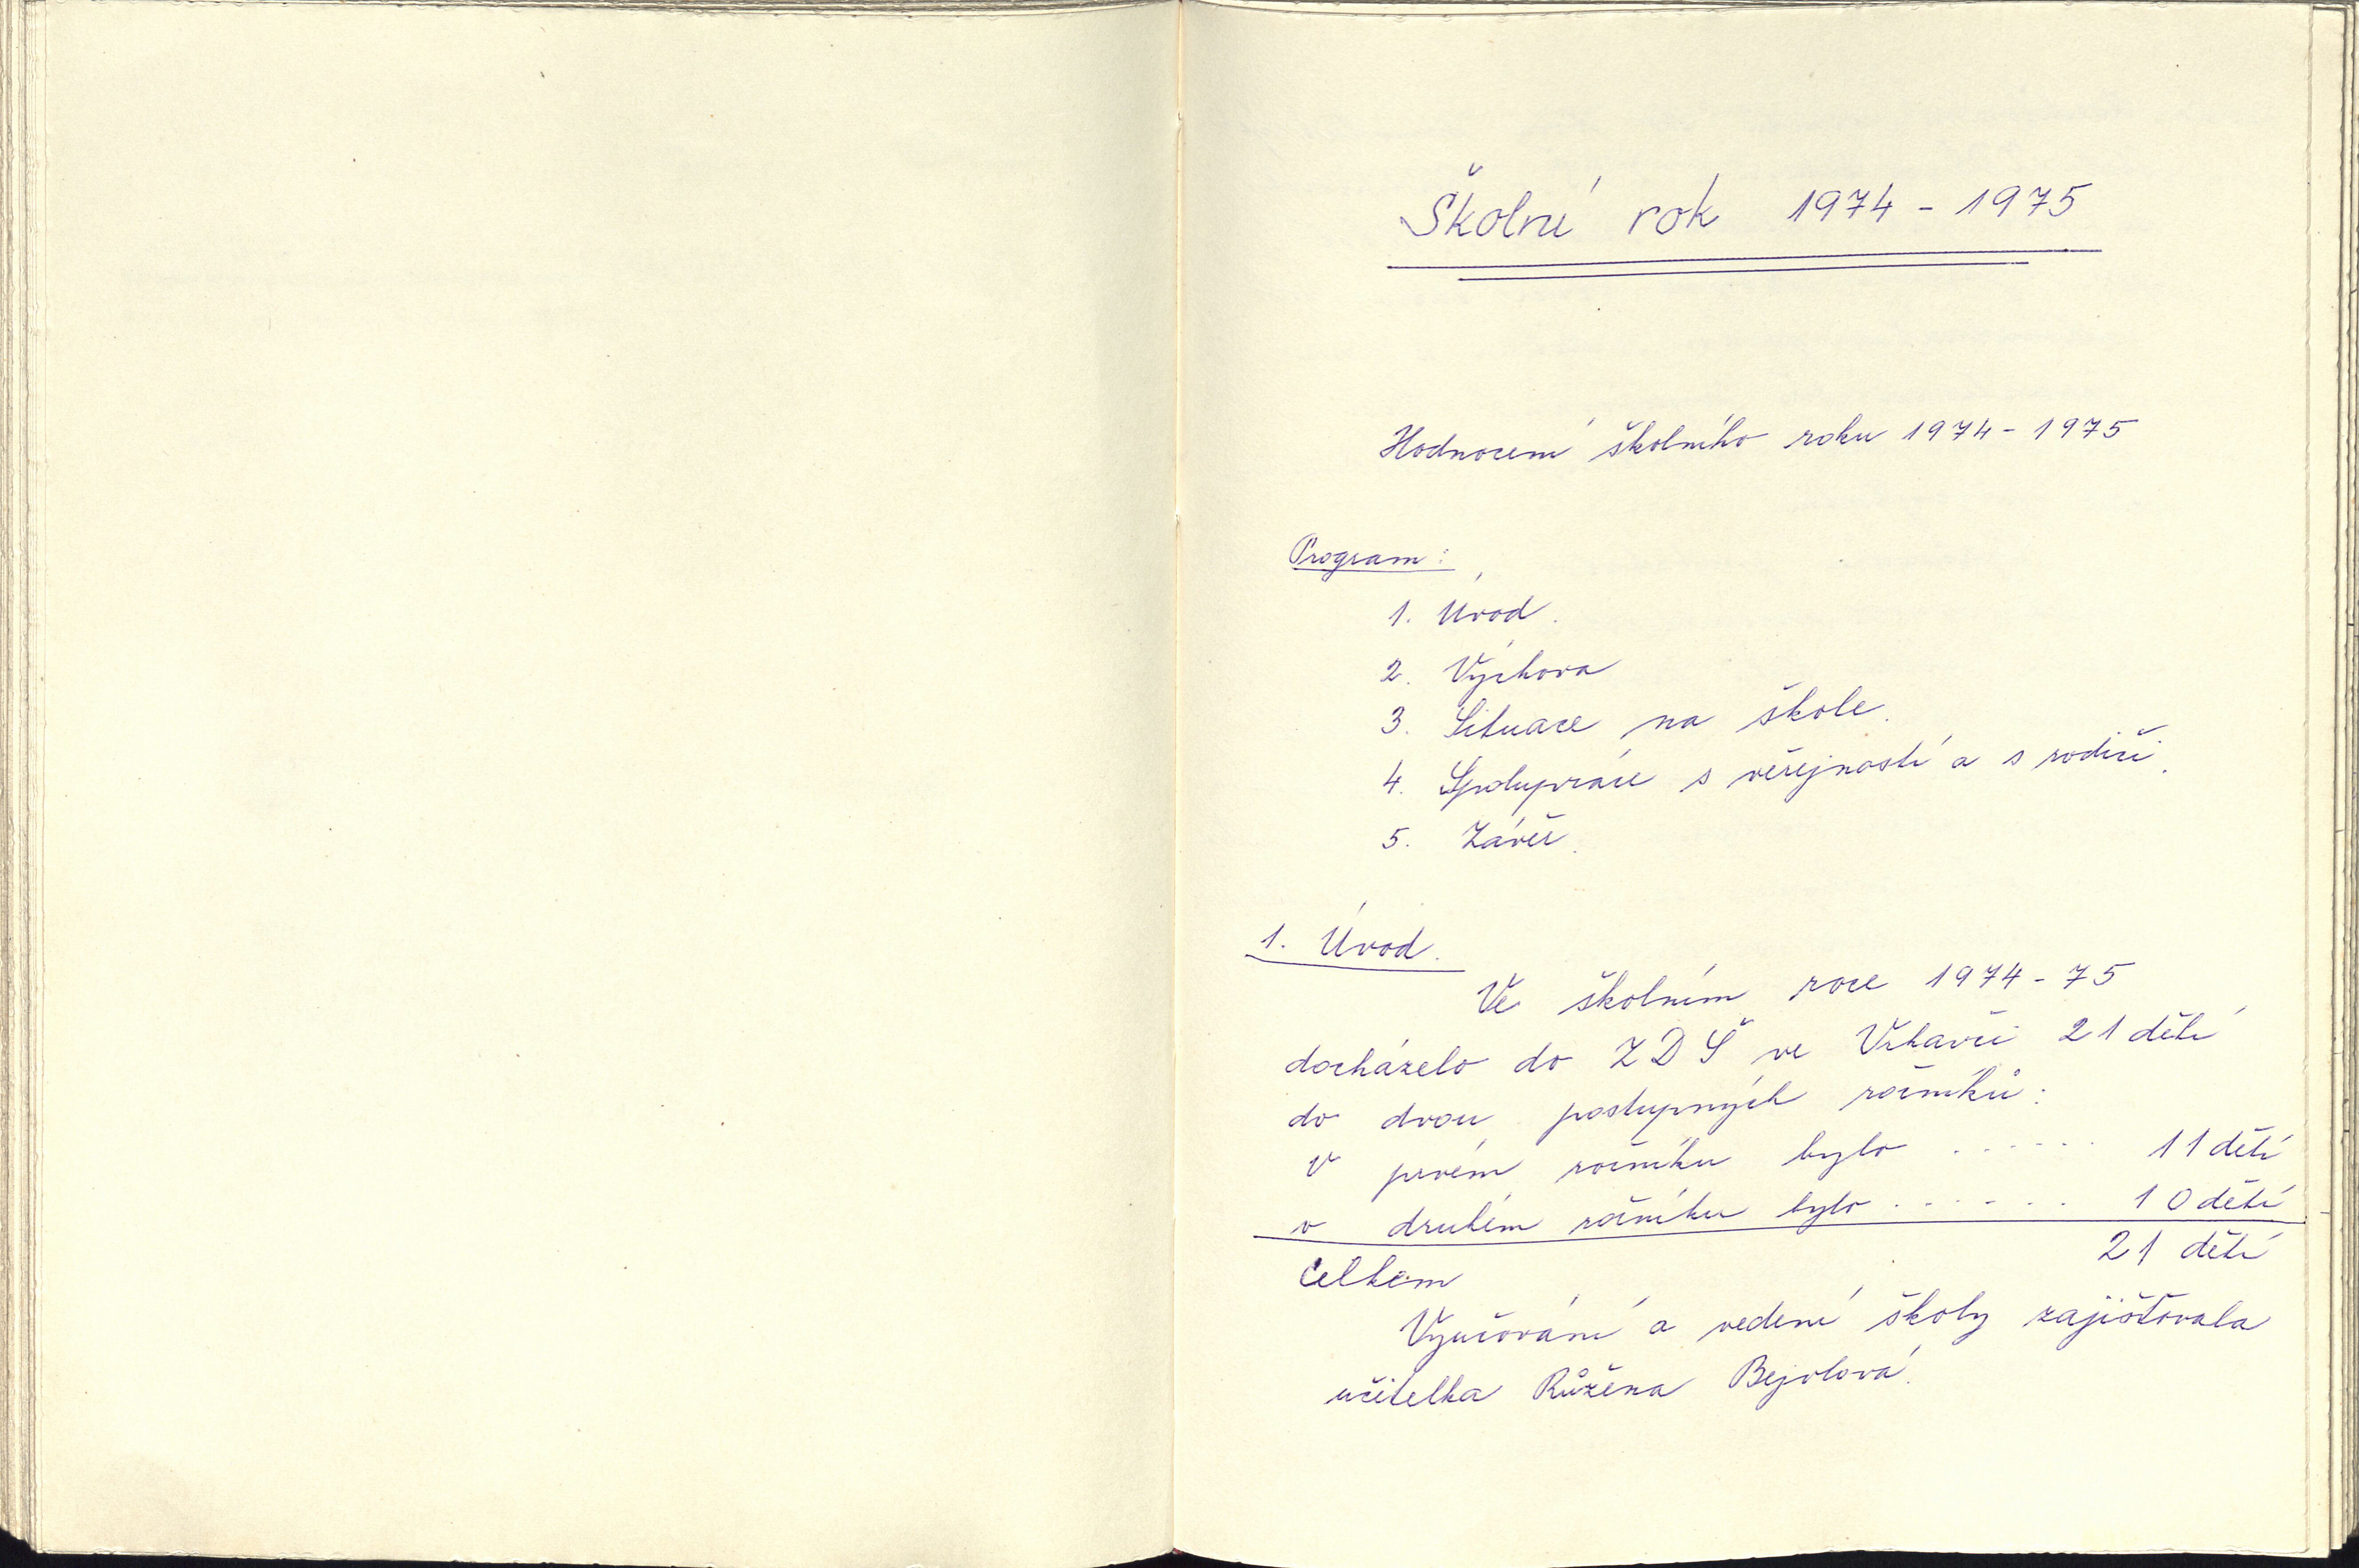 Školní rok 1974 - 1975
Hodnocení školního roku 1974 - 1975
Program:
1. Úvod.
2. Výchova
3. Situace na škole.
4. Spolupráce s veřejností a s rodiči.
5. Závěr.
1. Úvod.
Ve školním roce 1974 - 75
docházelo do ZDŠ ve Vltavči 21 dětí
do dvou postupných ročníků:
V prvém ročníku bylo ..... 11 dětí
v druhém ročníku bylo ...... 10 dětí
Celkem 21 dětí
Vyučování a vedení školy zajišťovala
učitelka Růžena Bejvlová.